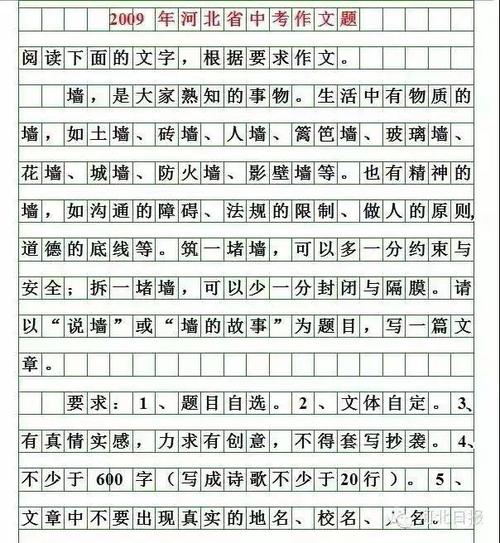 2009 年河北省中考作文题
阅读下面的文字，根据要求作文。
墙，是大家熟知的事物。生活中有物质的
墙，如土墙、砖墙、人墙、篱笆墙、玻璃墙、
花墙、城墙、防火墙、影壁墙等。也有精神的
墙，如沟通的障碍、法规的限制、做人的原则，
道德的底线等。筑一堵墙，可以多一分约束与
安全；拆一堵墙，可以少一分封闭与隔膜。请
以“说墙”或“墙的故事”为题目，写一篇文
章。
要求：1、题目自选。2、文体自定。3、
有真情实感，力求有创意，不得套写抄袭。4、
不少于 600 字（写成诗歌不少于20行）。5、
文章中不要出现真实的地名、校名、人名。
河北日报